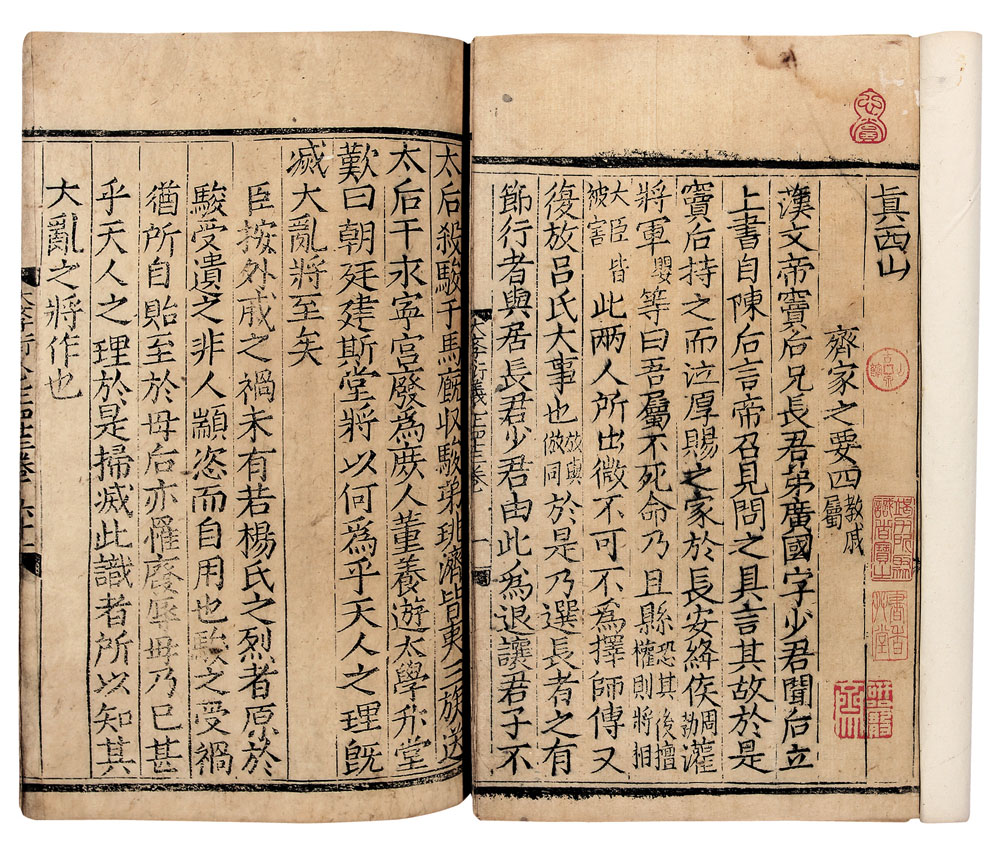 真西山
齊家之要四教戚屬
漢文帝竇后兄長君弟廣國字少君聞后立
上書自陳后言帝召見問之具言其故於是
竇后持之而泣厚賜之家於長安絳侯周勃灌
將軍嬰等曰吾屬不死命乃且縣恐其後擅權則將相
大臣皆被害此两人所出微不可不為擇師傅又
復放呂氏大事也放與倣同於是乃選長者之有
節行者與居長君少君由此為退讓君子不
太后殺駿于馬廄收駿弟珧濟皆夷三族送
太后于永寧宮廢為庶人董養遊太學升堂
歎曰朝廷建斯堂將以何為乎天人之理旣
滅大亂將至矣
臣按外戚之禍未有若楊氏之烈者原於
駿受遺之非人顓恣而自用也駿之受禍
猶所自貽至於母后亦罹廢辱毋乃已甚
乎天人之理於是掃滅此識者所以知其
大亂之將作也